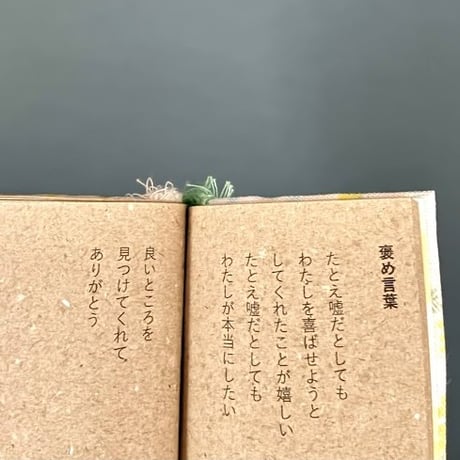 褒め言葉
たとえ嘘だとしても
わたしを喜ばせようと
してくれたことが嬉しい
たとえ嘘だとしても
わたしが本当にしたい
良いところを
見つけてくれて
ありがとう